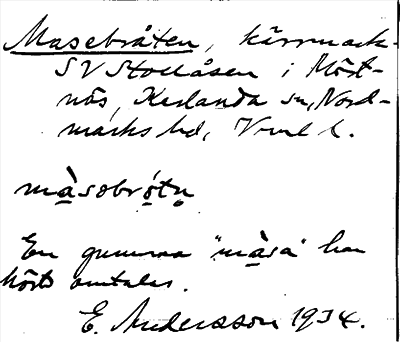 Masebråten, kärrmark
SV Stollåsen i Möst-
näs, Karlanda sn, Nord-
marks hd, Vrml l.
màsobrǫtn
En gumma "màsa" har
hörts omtalas.
E. Andersson 1934.